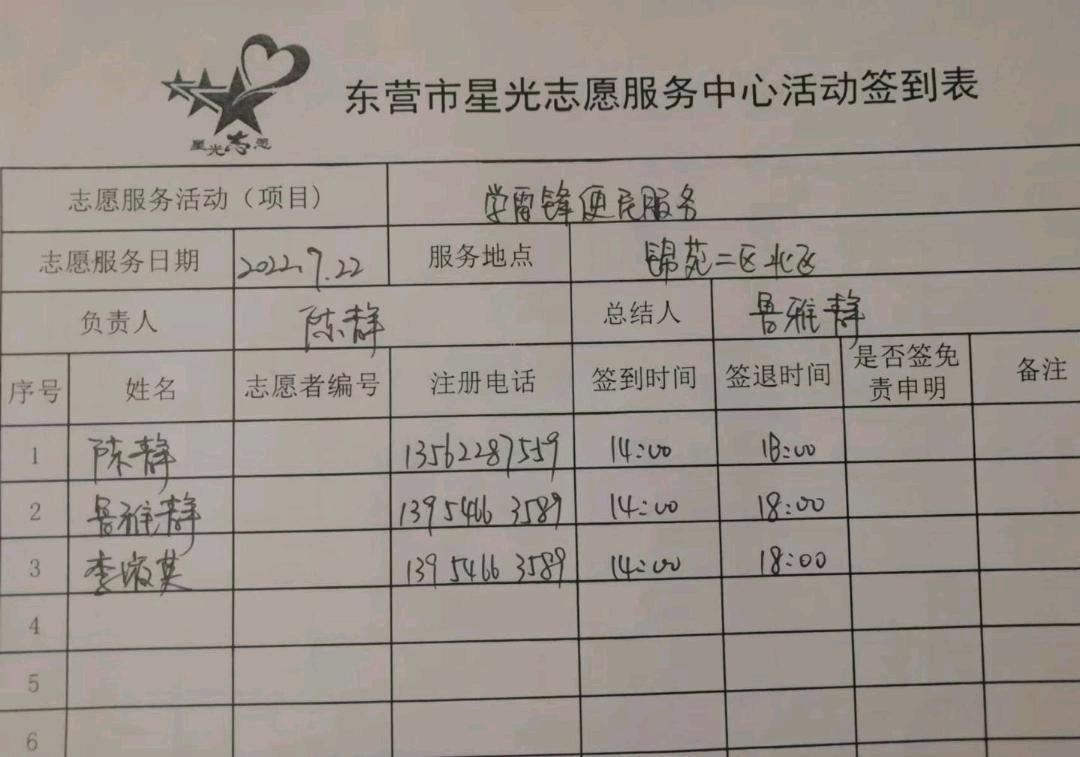 星光志愿
东营市星光志愿服务中心活动签到表
志愿服务活动（项目） 学雷锋便民服务
志愿服务日期 2022.7.22 服务地点 锦苑二区北区
负责人 陈静 总结人 鲁雅静
序号 姓名 志愿者编号 注册电话 签到时间 签退时间 是否签免责申明 备注
1 陈静 13562287559 14:00 18:00
2 鲁雅静 1395466 3589 14:00 18:00
3 李淑英 1395466 3589 14:00 18:00
4
5
6